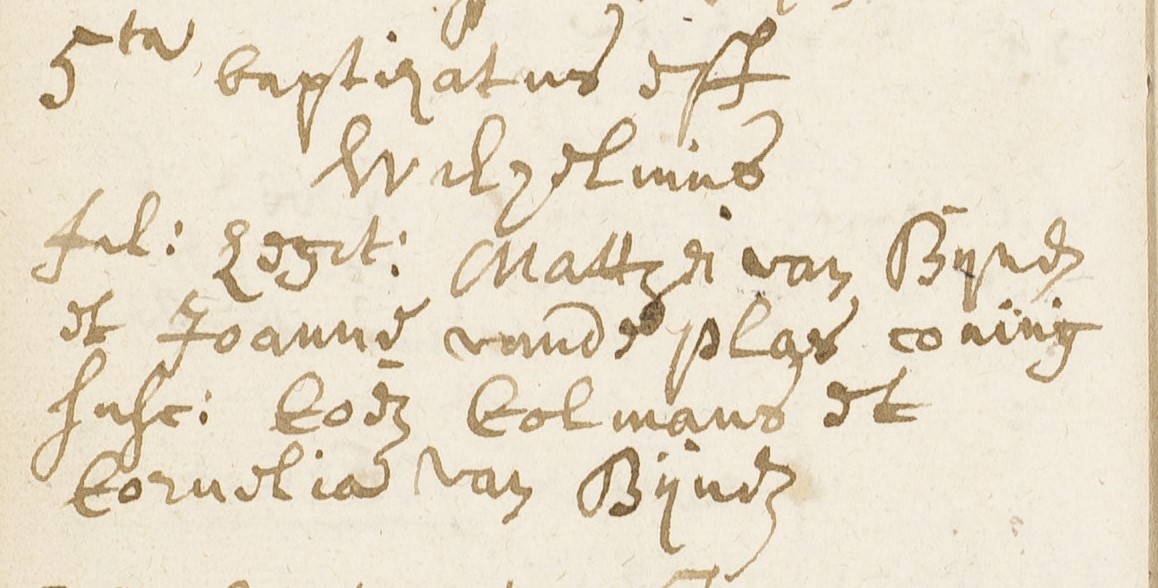 5ta baptizatus est
Wilhelmus
fil: Legit: Matthei van Bynen
et Joanne vande plas coning
susc: Coen Colmans et
Cornelia van Bijnen